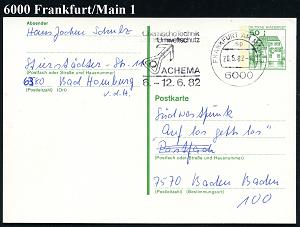 6000 Frankfurt/Main 1
Absender
Hans Jochen Schulz
(Postfach oder Straße und Hausnummer)
6380 Bad Homburg
(Postleitzahl) (Ort)
v.d.H.
Umweltschutz
ACHEMA
6.-12.6.82
FRANKFURT AM MAIN
6000
DEUTSCHE BUNDESPOST
50
Postkarte
Südwestfunk
"Auf los gehts los"
Postfach
(Postfach oder Straße und Hausnummer)
7570 Baden Baden
(Postleitzahl) (Bestimmungsort)
100